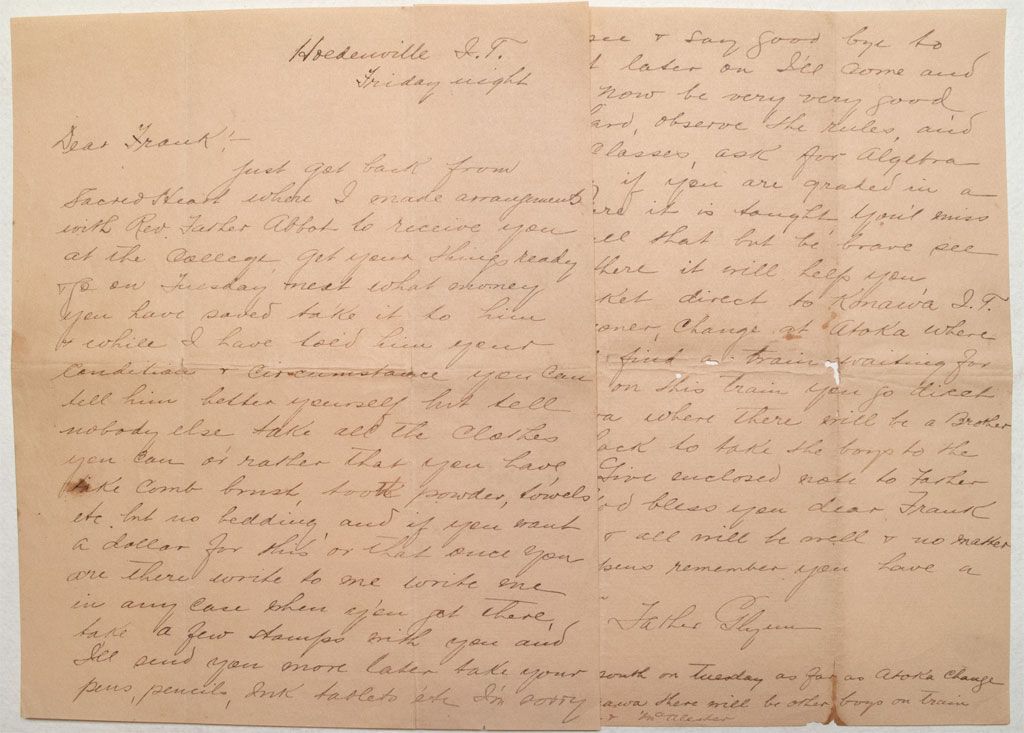 Hoedenville I.T.
Friday night
Dear Frank!-
Just got back from
Sacred Heart where I made arrangements
with Rev. Father Abbot to receive you
at the College get your things ready
& go on Tuesday next what money
you have saved take it to him
& while I have told him your
condition & circumstance you can
tell him better yourself but tell
nobody else take all the clothes
you can or rather that you have
take comb brush, tooth powder, towels
etc. but no bedding and if you want
a dollar for this or that once you
are there write to me write me
in any case when you get there,
take a few stamps with you and
I'll send you more later take your
pens, pencils, Ink tablets etc I'm sorry
see & say good bye to
later on I'll come and
now be very very good
observe the rules, and
classes, ask for Algebra
if you are graded in a
it is taught you'll miss
all that but be brave see
there it will help you
direct to Konawa I.T.
change at Atoka where
find a train waiting for
on this train you go direct
where there will be a Brother
to take the boys to the
Give enclosed note to Father
bless you dear Frank
& all will be well & no matter
remember you have a
Father Glynn
south on Tuesday as far as Atoka Change
there will be other boys on train
& McAlester